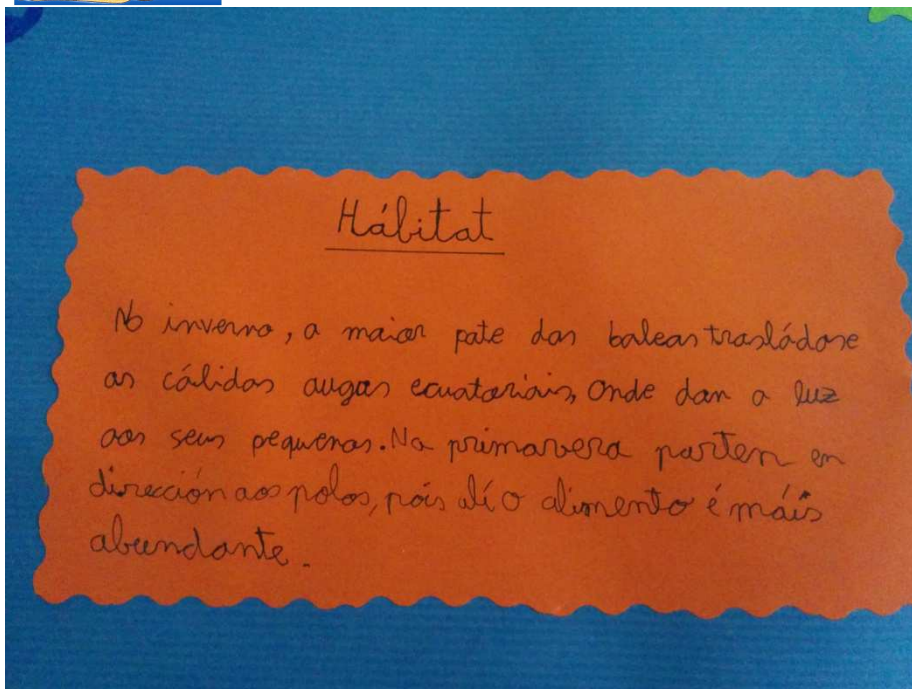 Hábitat
No inverno, a maior pate das baleas trasládase
as cálidas augas ecuatoriais, Onde dan a luz
aos seus pequenos. Na primavera parten en
dirección aos polos, pois alí o alimento é máis
abundante.